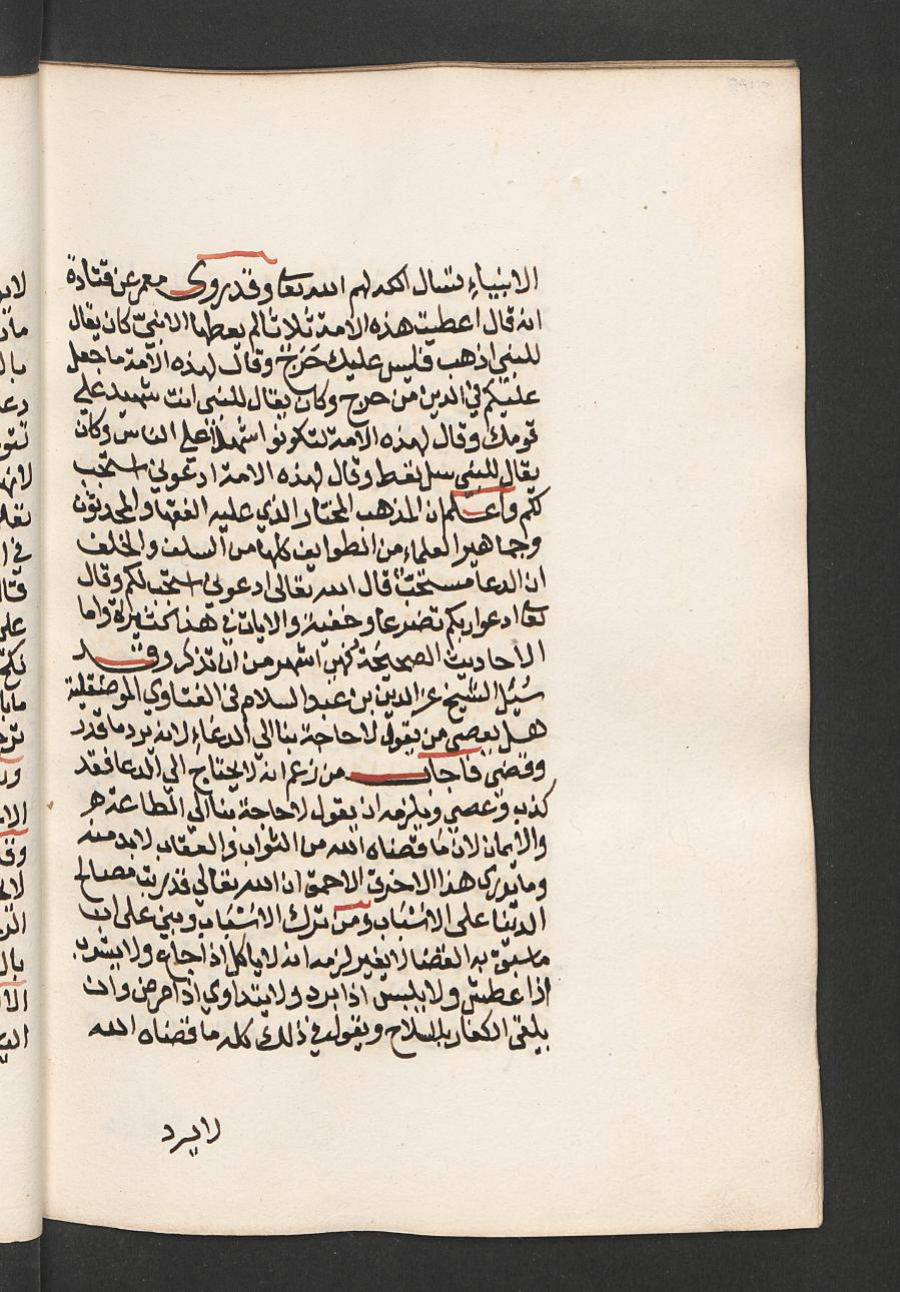 الانبياء تسال الله لهم الله تعا وقد روى معمر عن قتادة
انه قال اعطيت هذه الامة ثلاثا لم يعطها الا نبىّ كان يقال
للنبي اذهب فليس عليك حَرَجٌ وقال لهذه الامة ما جعل
عليكم في الدين من حرج وكان يقال للنبى انت شهيد على
قومك وقال لهذه الامة لتكونوا اشهدا على الناس وكان
يقال للنبي سل تعط وقال لهذه الامة ادعوني استجب
لكم واعلم ان المذهب المختار الذي عليه الفقها والمحدثون
وجماهير العلماء من الطوايف كلها من السلف والخلف
ان الدعا مستحَبّ قال الله تعالى ادعوني استجب لكم وقال
تعا ادعوا ربكم تضرعا وخفية والايات في هذا كثيرة واما
الاحاديث الصحيحة فهي اشهر من ان تذكر وقد
سُئل الشيخ عز الدين بن عبد السلام في الفتاوي الموصقلية
هل يعصي من يقول لا حاجة بنا الي الدعاء لانه يرد ما قدر
وقضى فاجاب من زعم انه لا يحتاج الي الدعا فقد
كذب وعصي ويلزمه ان يقول لا حاجة بنا الي الطاعة
والايمان لان ما قضاه الله من الثواب والعقاب لابد منه
وما يدرى هذا الاخرق الاحمق ان الله تعالي قد رتب مصالح
الدنيا على الاسباب ومن ترك الاسباب وبني على ان
ما سبق به القضا لا يغير لزمه ان لا ياكل اذا جاع ولا يشرب
اذا عطش ولا يلبس اذا برد ولا يتداوي اذا مرض وان
يلقى الكفار بلا سلاح ويقول في ذلك كله ما قضاه الله
لا يرد